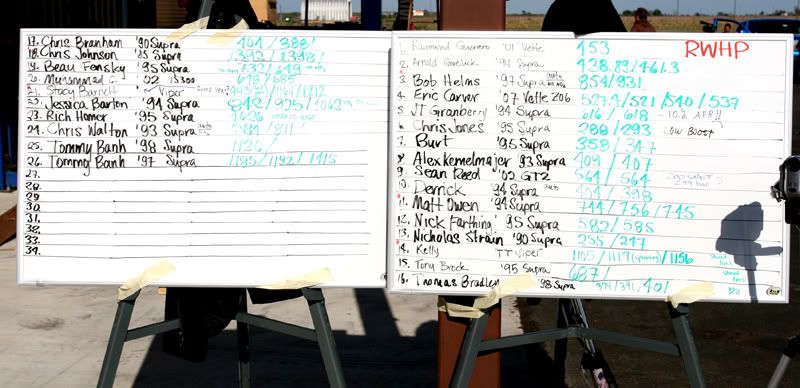 17. Chris Branham '90 Supra 404 / 388
18. Chris Johnson '95 Supra 1392 / 1398
19. Beau Fensky '95 Supra 732 / 749
20. Muhammad '02 IS300 678 / 685
21. Stacy Barnett Viper
22. Jessica Barton '94 Supra 842 / 925 / 1062
23. Rich Homer '95 Supra 1026
24. Chris Walton '93 Supra auto 584 / 811
25. Tommy Banh '98 Supra 1120 /
26. Tommy Banh '97 Supra 1185 / 1192 / 1415
27.
28.
29.
30.
31.
32.
33.
34.
RWHP
1. Raymond Guerrero '01 Vette 453
2. Arnold '94 Supra 438.89 / 461.3
3. Bob Helms '97 Supra auto 854 / 931
4. Eric Carver '07 Vette Z06 527.7 / 521 / 540 / 537
5. JT Granberry '94 Supra 616 / 618 - 10.2 AFR!!
6. Chris Jones '95 Supra 288 / 293 LOW BOOST
7. Burt '95 Supra 358 / 347
8. Alex Kemelmajer 93 Supra 409 / 407
9. Sean Reed '02 GT2 564 / 564
10. Derrick '94 Supra auto 404 / 398
11. Matt Owen '94 Supra 744 / 756 / 745
12. Nick Farthing '95 Supra 582 / 585
13. Nicholas Strain '90 Supra 255 / 247
14. Kelly TT Viper 1105 / 1117 (spinning) / 1156 Street tires
15. Tony Brock '95 Supra 687 / Street tires
16. Thomas Bradley '98 Supra 374 / 391 / 401 BPU